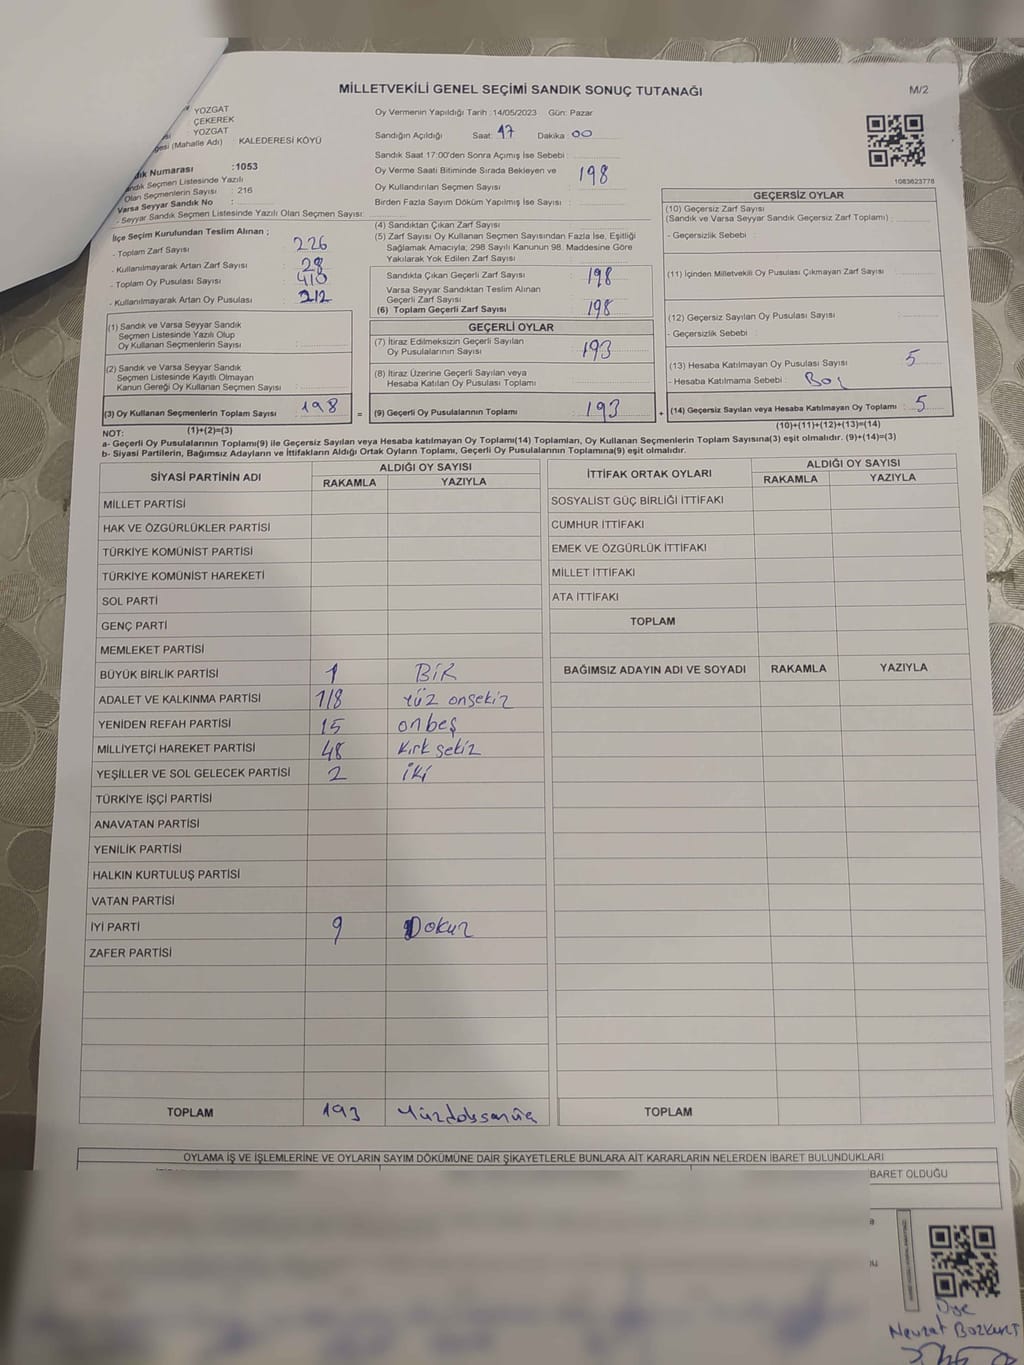 MİLLETVEKİLİ GENEL SEÇİMİ SANDIK SONUÇ TUTANAĞI
M/2
YOZGAT
ÇEKEREK
YOZGAT
(Mahalle Adı) : KALEDERESİ KÖYÜ
Numarası :1053
Seçmen Listesinde Yazılı
Olan Seçmenlerin Sayısı : 216
Varsa Seyyar Sandık No :
- Seyyar Sandık Seçmen Listesinde Yazılı Olan Seçmen Sayısı:
Oy Vermenin Yapıldığı Tarih : 14/05/2023 Gün: Pazar
Sandığın Açıldığı Saat: 17 Dakika: 00
Sandık Saat 17:00'den Sonra Açımış İse Sebebi :
Oy Verme Saati Bitiminde Sırada Bekleyen ve
Oy Kullandırılan Seçmen Sayısı : 198
Birden Fazla Sayım Döküm Yapılmış İse Sayısı :
1083623778
İlçe Seçim Kurulundan Teslim Alınan ;
- Toplam Zarf Sayısı : 226
- Kullanılmayarak Artan Zarf Sayısı : 28
- Toplam Oy Pusulası Sayısı : 410
- Kullanılmayarak Artan Oy Pusulası : 212
(1) Sandık ve Varsa Seyyar Sandık
Seçmen Listesinde Yazılı Olup
Oy Kullanan Seçmenlerin Sayısı :
(2) Sandık ve Varsa Seyyar Sandık
Seçmen Listesinde Kayıtlı Olmayan
Kanun Gereği Oy Kullanan Seçmen Sayısı :
(3) Oy Kullanan Seçmenlerin Toplam Sayısı : 198 =
(1)+(2)=(3)
(4) Sandıktan Çıkan Zarf Sayısı :
(5) Zarf Sayısı Oy Kullanan Seçmen Sayısından Fazla İse, Eşitliği
Sağlamak Amacıyla; 298 Sayılı Kanunun 98. Maddesine Göre
Yakılarak Yok Edilen Zarf Sayısı :
Sandıkta Çıkan Geçerli Zarf Sayısı : 198
Varsa Seyyar Sandıktan Teslim Alınan
Geçerli Zarf Sayısı :
(6) Toplam Geçerli Zarf Sayısı : 198
GEÇERLİ OYLAR
(7) İtiraz Edilmeksizin Geçerli Sayılan
Oy Pusulalarının Sayısı : 193
(8) İtiraz Üzerine Geçerli Sayılan veya
Hesaba Katılan Oy Pusulası Toplamı :
(9) Geçerli Oy Pusulalarının Toplamı : 193 +
GEÇERSİZ OYLAR
(10) Geçersiz Zarf Sayısı
(Sandık ve Varsa Seyyar Sandık Geçersiz Zarf Toplamı) :
- Geçersizlik Sebebi :
(11) İçinden Milletvekili Oy Pusulası Çıkmayan Zarf Sayısı :
(12) Geçersiz Sayılan Oy Pusulası Sayısı :
- Geçersizlik Sebebi :
(13) Hesaba Katılmayan Oy Pusulası Sayısı : 5
- Hesaba Katılmama Sebebi : Boş
(14) Geçersiz Sayılan veya Hesaba Katılmayan Oy Toplamı : 5
(10)+(11)+(12)+(13)=(14)
NOT:
a- Geçerli Oy Pusulalarının Toplamı(9) ile Geçersiz Sayılan veya Hesaba katılmayan Oy Toplamı(14) Toplamları, Oy Kullanan Seçmenlerin Toplam Sayısına(3) eşit olmalıdır. (9)+(14)=(3)
b- Siyasi Partilerin, Bağımsız Adayların ve İttifakların Aldığı Ortak Oyların Toplamı, Geçerli Oy Pusulalarının Toplamına(9) eşit olmalıdır.
SİYASİ PARTİNİN ADI ALDIĞI OY SAYISI
RAKAMLA YAZIYLA
MİLLET PARTİSİ
HAK VE ÖZGÜRLÜKLER PARTİSİ
TÜRKİYE KOMÜNİST PARTİSİ
TÜRKİYE KOMÜNİST HAREKETİ
SOL PARTİ
GENÇ PARTİ
MEMLEKET PARTİSİ
BÜYÜK BİRLİK PARTİSİ 1 BİR
ADALET VE KALKINMA PARTİSİ 118 Yüz onsekiz
YENİDEN REFAH PARTİSİ 15 onbeş
MİLLİYETÇİ HAREKET PARTİSİ 48 Kırk sekiz
YEŞİLLER VE SOL GELECEK PARTİSİ 2 iki
TÜRKİYE İŞÇİ PARTİSİ
ANAVATAN PARTİSİ
YENİLİK PARTİSİ
HALKIN KURTULUŞ PARTİSİ
VATAN PARTİSİ
İYİ PARTİ 9 Dokuz
ZAFER PARTİSİ
TOPLAM 193 Yüzdoksanüç
İTTİFAK ORTAK OYLARI ALDIĞI OY SAYISI
RAKAMLA YAZIYLA
SOSYALİST GÜÇ BİRLİĞİ İTTİFAKI
CUMHUR İTTİFAKI
EMEK VE ÖZGÜRLÜK İTTİFAKI
MİLLET İTTİFAKI
ATA İTTİFAKI
TOPLAM
BAĞIMSIZ ADAYIN ADI VE SOYADI RAKAMLA YAZIYLA
TOPLAM
OYLAMA İŞ VE İŞLEMLERİNE VE OYLARIN SAYIM DÖKÜMÜNE DAİR ŞİKAYETLERLE BUNLARA AİT KARARLARIN NELERDEN İBARET BULUNDUKLARI
BARET OLDUĞU
Üye
Nevzat Bozkurt